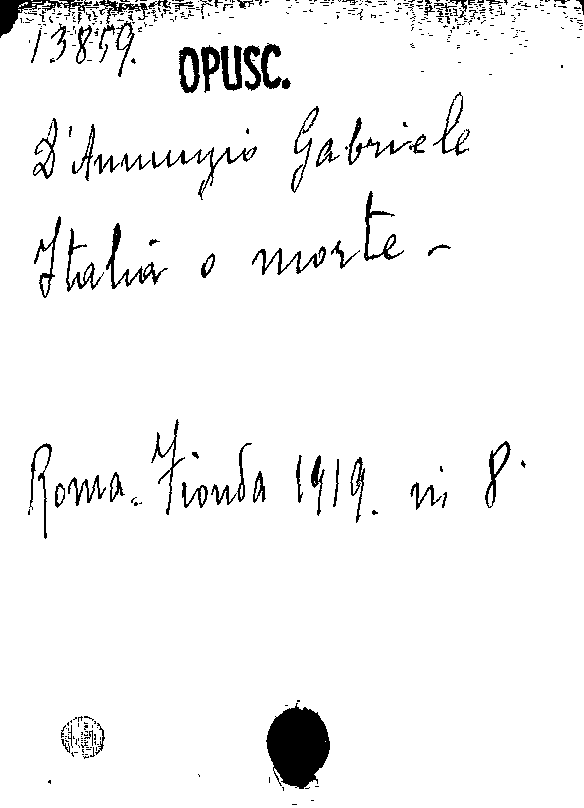 13859.
OPUSC.
D'Annunzio Gabriele
Italia o morte -
Roma. Fionda 1919. in 8.